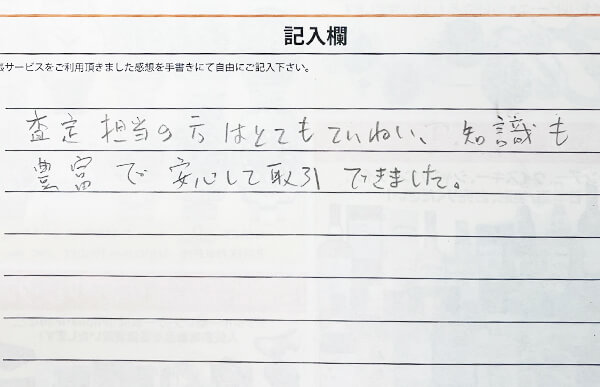 記入欄
張サービスをご利用頂きました感想を手書きにて自由にご記入下さい。
査定担当の方はとてもていねい、知識も
豊富で安心して取引できました。